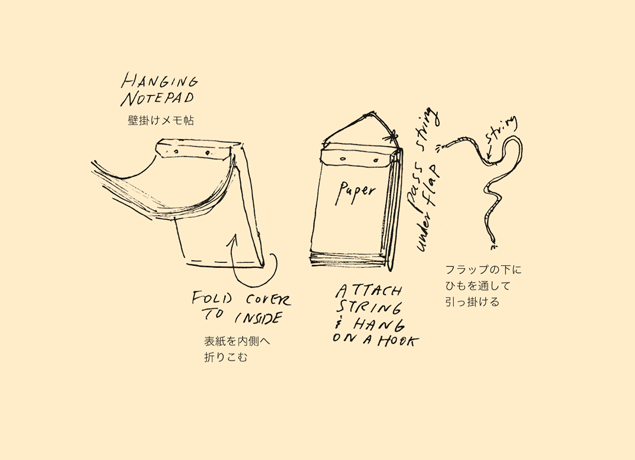 HANGING
NOTEPAD
壁掛けメモ帖
FOLD COVER
TO INSIDE
表紙を内側へ
折りこむ
Paper
ATTACH
STRING
& HANG
ON A HOOK
pass string
under flap
string
フラップの下に
ひもを通して
引っ掛ける